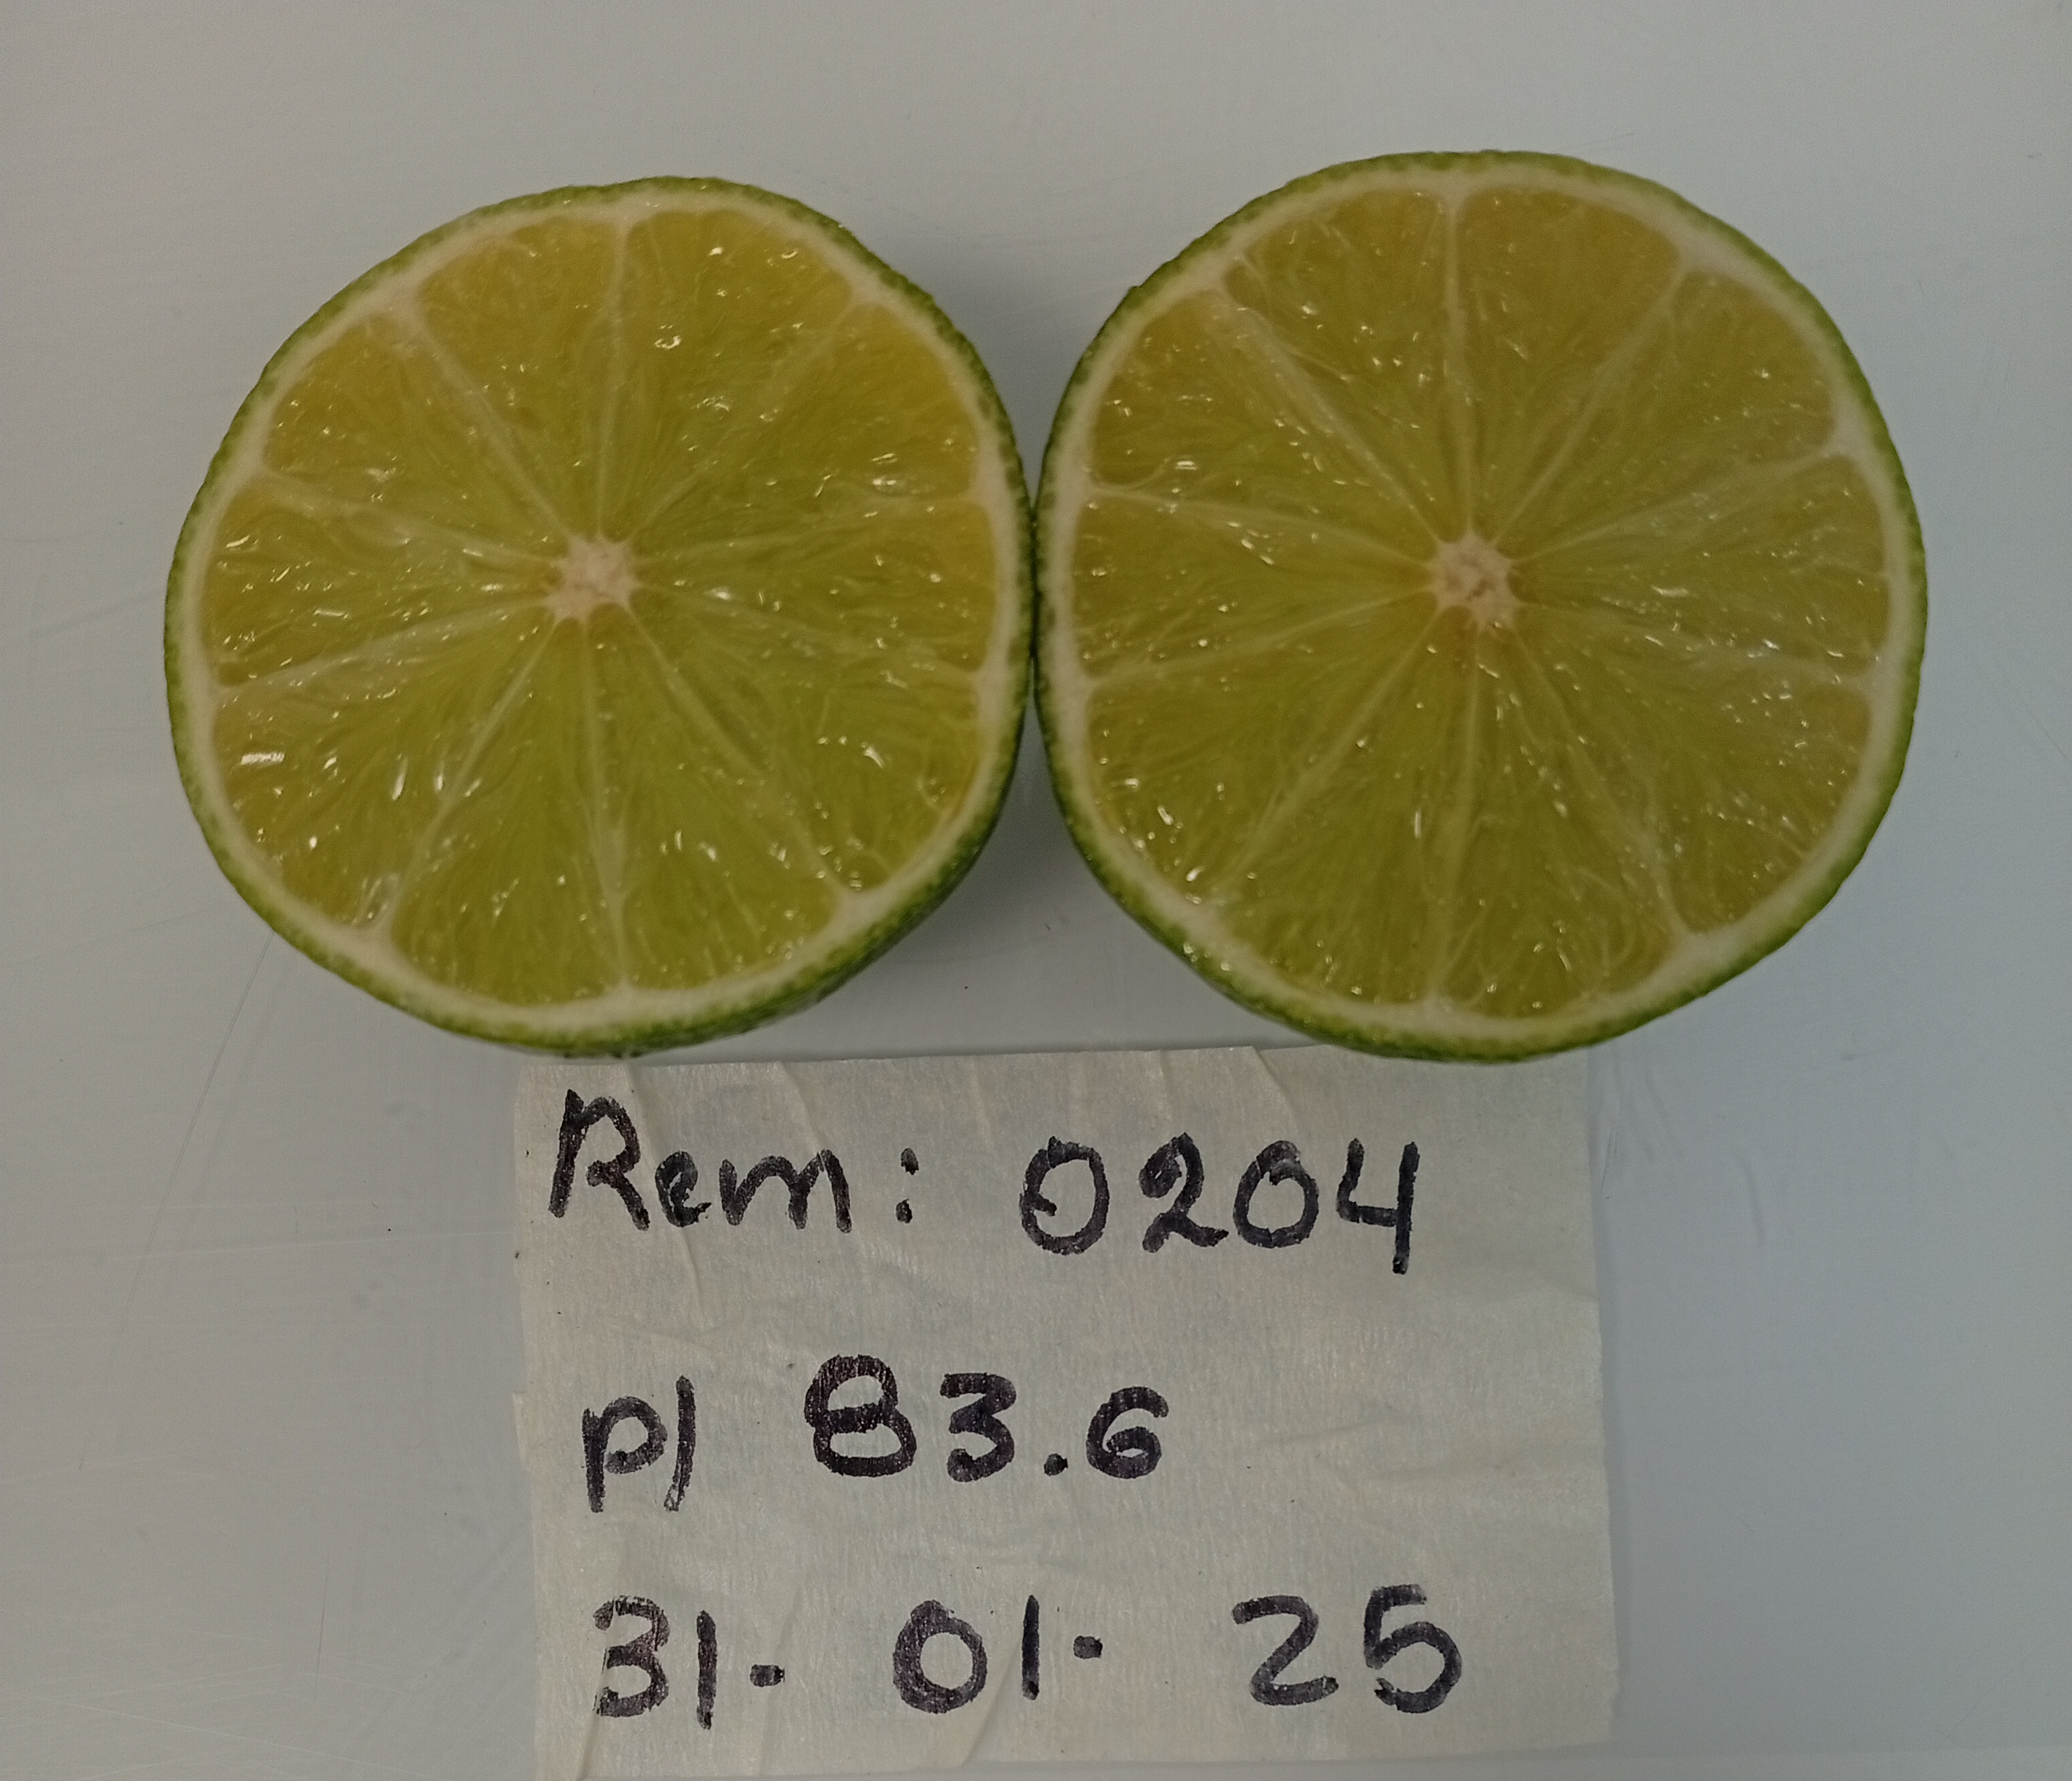 Rem: 0204
p/ 83.6
31. 01. 25